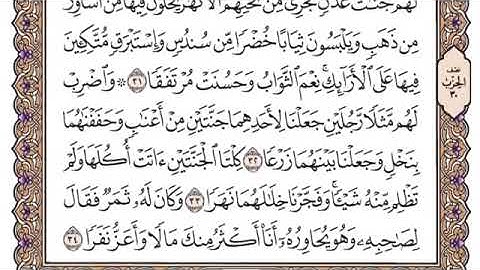 لَهُمْ جَنَّٰتُ عَدْنٍ تَجْرِى مِن تَحْتِهِمُ ٱلْأَنْهَٰرُ يُحَلَّوْنَ فِيهَا مِنْ أَسَاوِرَ
مِن ذَهَبٍ وَيَلْبَسُونَ ثِيَابًا خُضْرًا مِّن سُندُسٍ وَإِسْتَبْرَقٍ مُّتَّكِـِٔينَ
فِيهَا عَلَى ٱلْأَرَآئِكِ ۚ نِعْمَ ٱلثَّوَابُ وَحَسُنَتْ مُرْتَفَقًا ٣١ ۞ وَٱضْرِبْ
لَهُم مَّثَلًا رَّجُلَيْنِ جَعَلْنَا لِأَحَدِهِمَا جَنَّتَيْنِ مِنْ أَعْنَٰبٍ وَحَفَفْنَٰهُمَا
بِنَخْلٍ وَجَعَلْنَا بَيْنَهُمَا زَرْعًا ٣٢ كِلْتَا ٱلْجَنَّتَيْنِ ءَاتَتْ أُكُلَهَا وَلَمْ
تَظْلِم مِّنْهُ شَيْـًٔا ۚ وَفَجَّرْنَا خِلَٰلَهُمَا نَهَرًا ٣٣ وَكَانَ لَهُۥ ثَمَرٌ فَقَالَ
لِصَٰحِبِهِۦ وَهُوَ يُحَاوِرُهُۥٓ أَنَا۠ أَكْثَرُ مِنكَ مَالًا وَأَعَزُّ نَفَرًا ٣٤
نصف
الحزب
٣٠